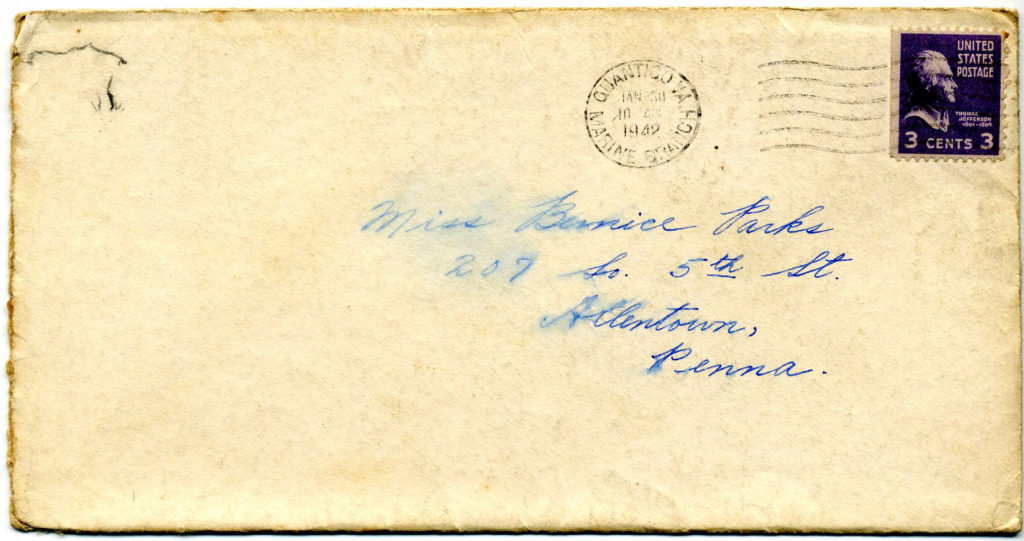 QUANTICO, VA.
MARINE BRANCH
JAN 30
10 AM
1942
UNITED
STATES
POSTAGE
THOMAS
JEFFERSON
1801-1809
3 CENTS 3
Miss Bernice Parks
207 So. 5th St.
Allentown,
Penna.